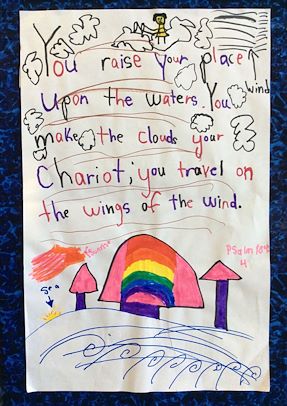 You raise your place
Upon the waters. You
wind
make the clouds your
Chariot; you travel on
the wings of the wind.
Sunrise
Psalm 104
Sea